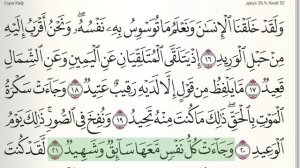 Сура Каф
джуз 26, Ḥизб 52
وَلَقَدْ خَلَقْنَا ٱلْإِنسَٰنَ وَنَعْلَمُ مَا تُوَسْوِسُ بِهِۦ نَفْسُهُۥ ۖ وَنَحْنُ أَقْرَبُ إِلَيْهِ
مِنْ حَبْلِ ٱلْوَرِيدِ ١٦ إِذْ يَتَلَقَّى ٱلْمُتَلَقِّيَانِ عَنِ ٱلْيَمِينِ وَعَنِ ٱلشِّمَالِ
قَعِيدٌ ١٧ مَّا يَلْفِظُ مِن قَوْلٍ إِلَّا لَدَيْهِ رَقِيبٌ عَتِيدٌ ١٨ وَجَآءَتْ سَكْرَةُ
ٱلْمَوْتِ بِٱلْحَقِّ ۖ ذَٰلِكَ مَا كُنتَ مِنْهُ تَحِيدُ ١٩ وَنُفِخَ فِى ٱلصُّورِ ۚ ذَٰلِكَ يَوْمُ
ٱلْوَعِيدِ ٢٠ وَجَآءَتْ كُلُّ نَفْسٍ مَّعَهَا سَآئِقٌ وَشَهِيدٌ ٢١ لَّقَدْ كُنتَ